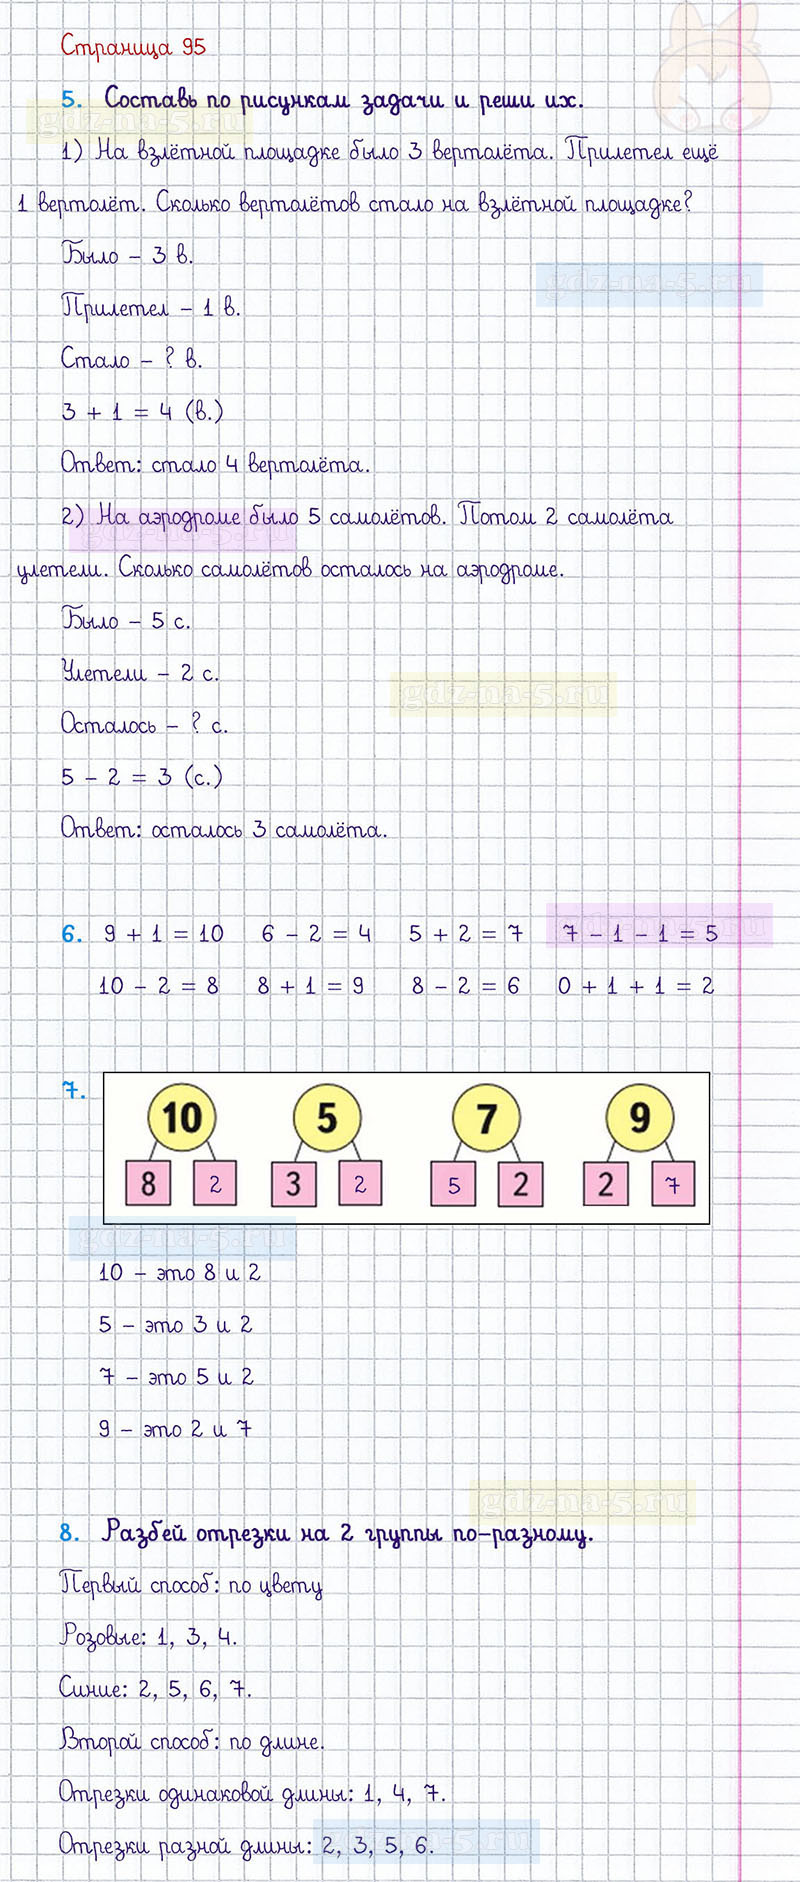 Страница 95
5. Составь по рисункам задачи и реши их.
gdz-na-5.ru
1) На взлётной площадке было 3 вертолёта. Прилетел ещё
1 вертолёт. Сколько вертолётов стало на взлётной площадке?
Было – 3 в.
gdz-na-5.ru
Прилетел – 1 в.
Стало – ? в.
3 + 1 = 4 (в.)
Ответ: стало 4 вертолёта.
2) На аэродроме было 5 самолётов. Потом 2 самолёта
gdz-na-5.ru
улетели. Сколько самолётов осталось на аэродроме.
Было – 5 с.
Улетели – 2 с.
gdz-na-5.ru
Осталось – ? с.
5 – 2 = 3 (с.)
Ответ: осталось 3 самолёта.
6. 9 + 1 = 10 6 – 2 = 4 5 + 2 = 7 7 – 1 – 1 = 5
gdz-na-5.ru
10 – 2 = 8 8 + 1 = 9 8 – 2 = 6 0 + 1 + 1 = 2
7.
10 5 7 9
8 2 3 2 5 2 2 7
gdz-na-5.ru
10 – это 8 и 2
5 – это 3 и 2
7 – это 5 и 2
9 – это 2 и 7
gdz-na-5.ru
8. Разбей отрезки на 2 группы по-разному.
Первый способ: по цвету
Розовые: 1, 3, 4.
Синие: 2, 5, 6, 7.
Второй способ: по длине.
Отрезки одинаковой длины: 1, 4, 7.
Отрезки разной длины: 2, 3, 5, 6.
gdz-na-5.ru